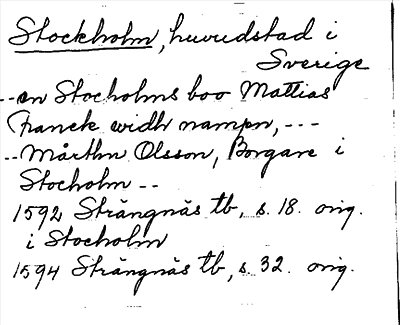 Stockholm, huvudstad i
Sverige
--en Stocholms boo Mattias
Franck widh nampn, ---
--Mårthn Olsson, Borgare i
Stocholm --
1592 Strängnäs tb, s. 18. orig.
i Stocholm
1594 Strängnäs tb, s. 32. orig.